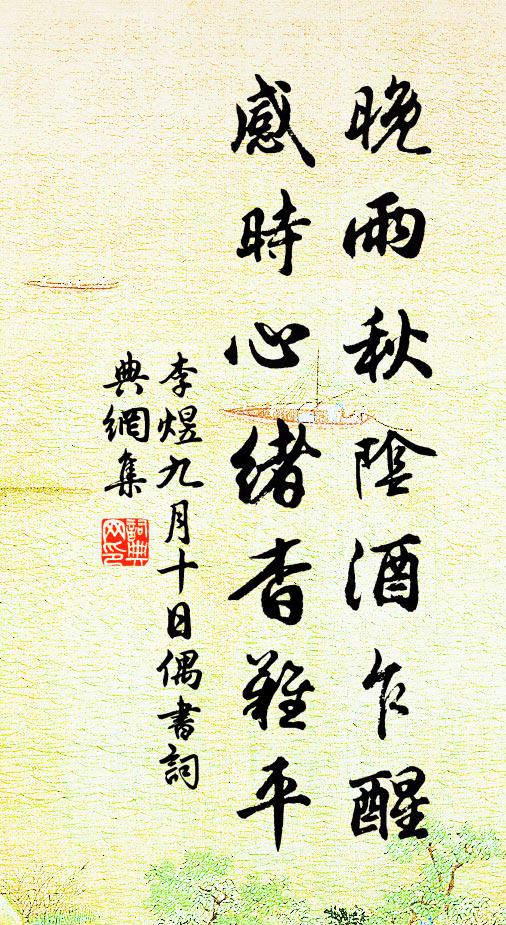 晚雨秋陰酒乍醒
感時心緒杳難平
李煜九月十日偶書詞
典網集
詞典
网印